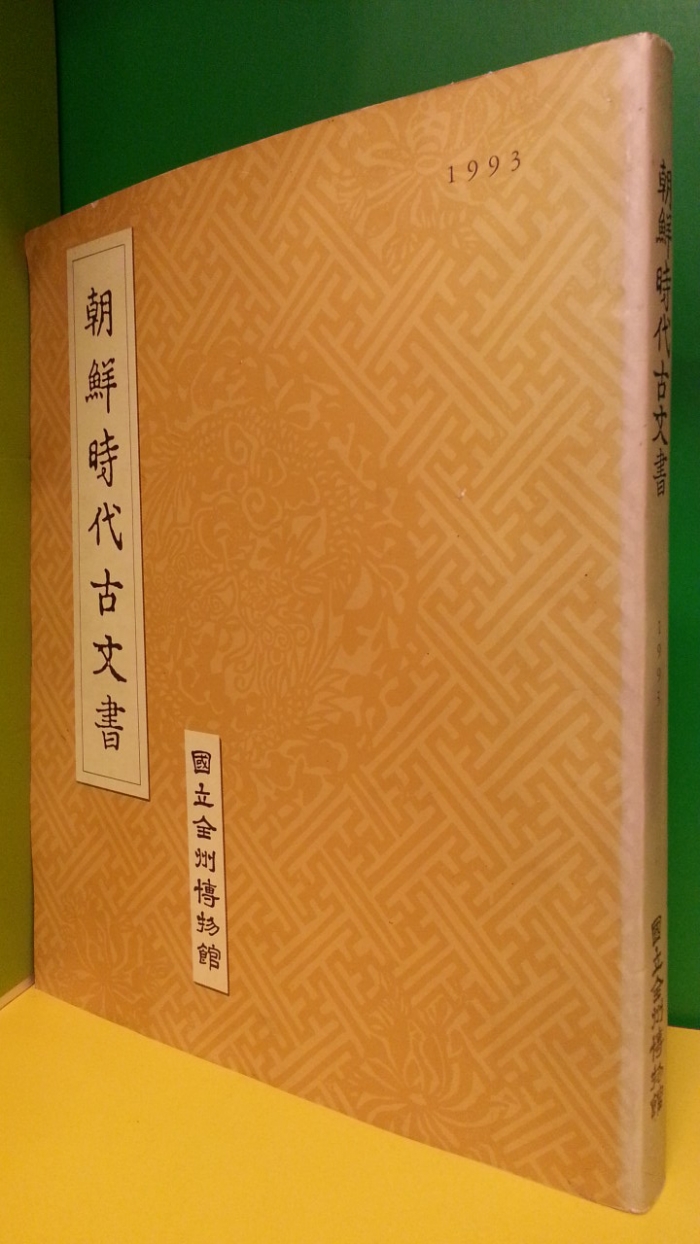 1993
朝鮮時代古文書
國立全州博物館
朝鮮時代古文書
1993
國立全州博物館